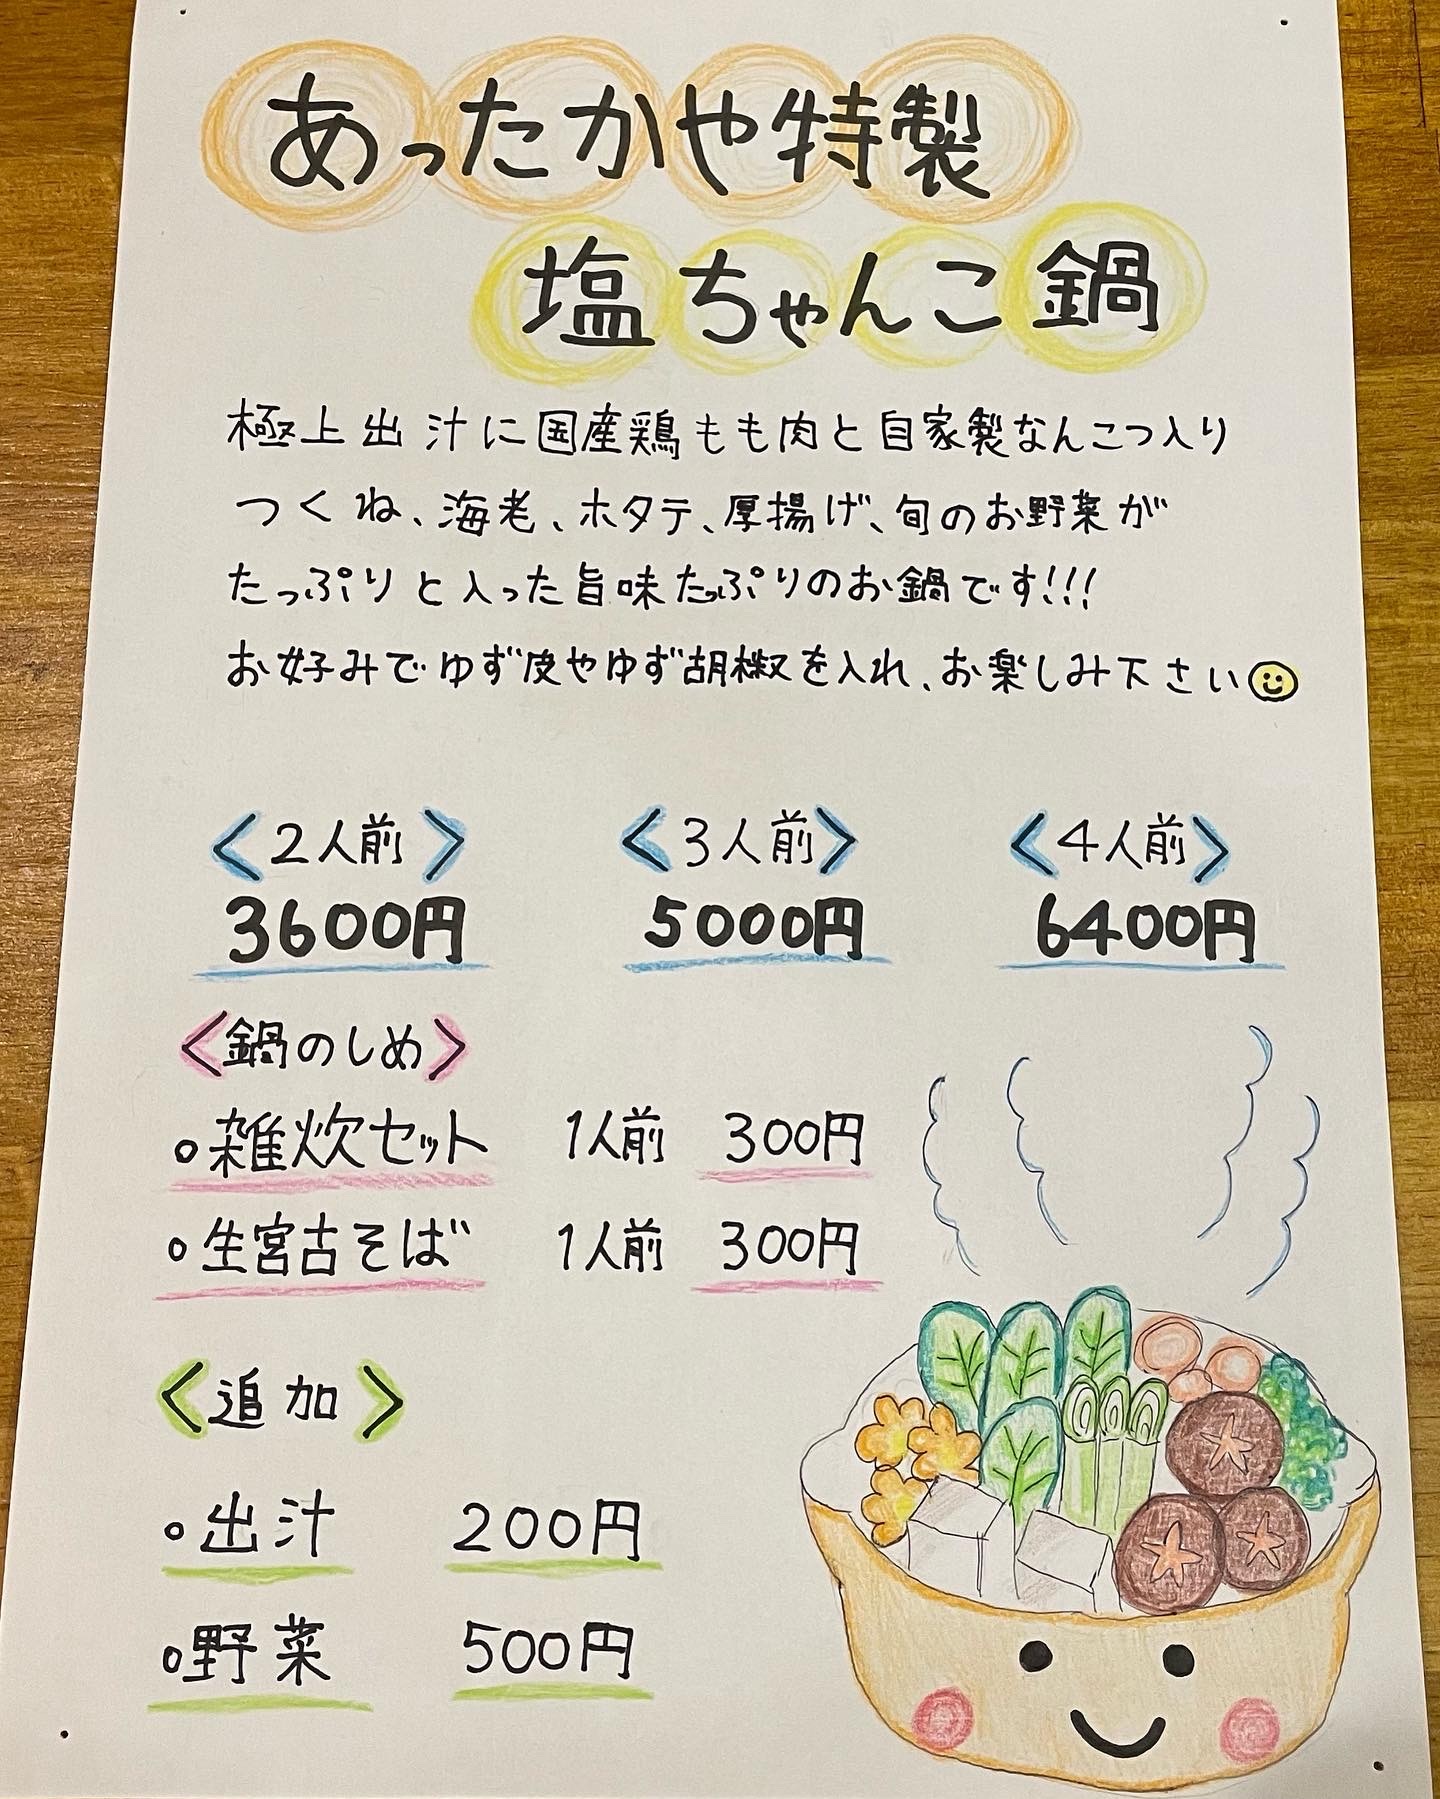 あったかや特製
塩ちゃんこ鍋
極上出汁に国産鶏もも肉と自家製なんこつ入り
つくね、海老、ホタテ、厚揚げ、旬のお野菜が
たっぷりと入った旨味たっぷりのお鍋です!!!
お好みでゆず皮やゆず胡椒を入れ、お楽しみ下さい
<2人前> <3人前> <4人前>
3600円 5000円 6400円
<鍋のしめ>
○雑炊セット 1人前 300円
○生宮古そば 1人前 300円
<追加>
○出汁 200円
○野菜 500円